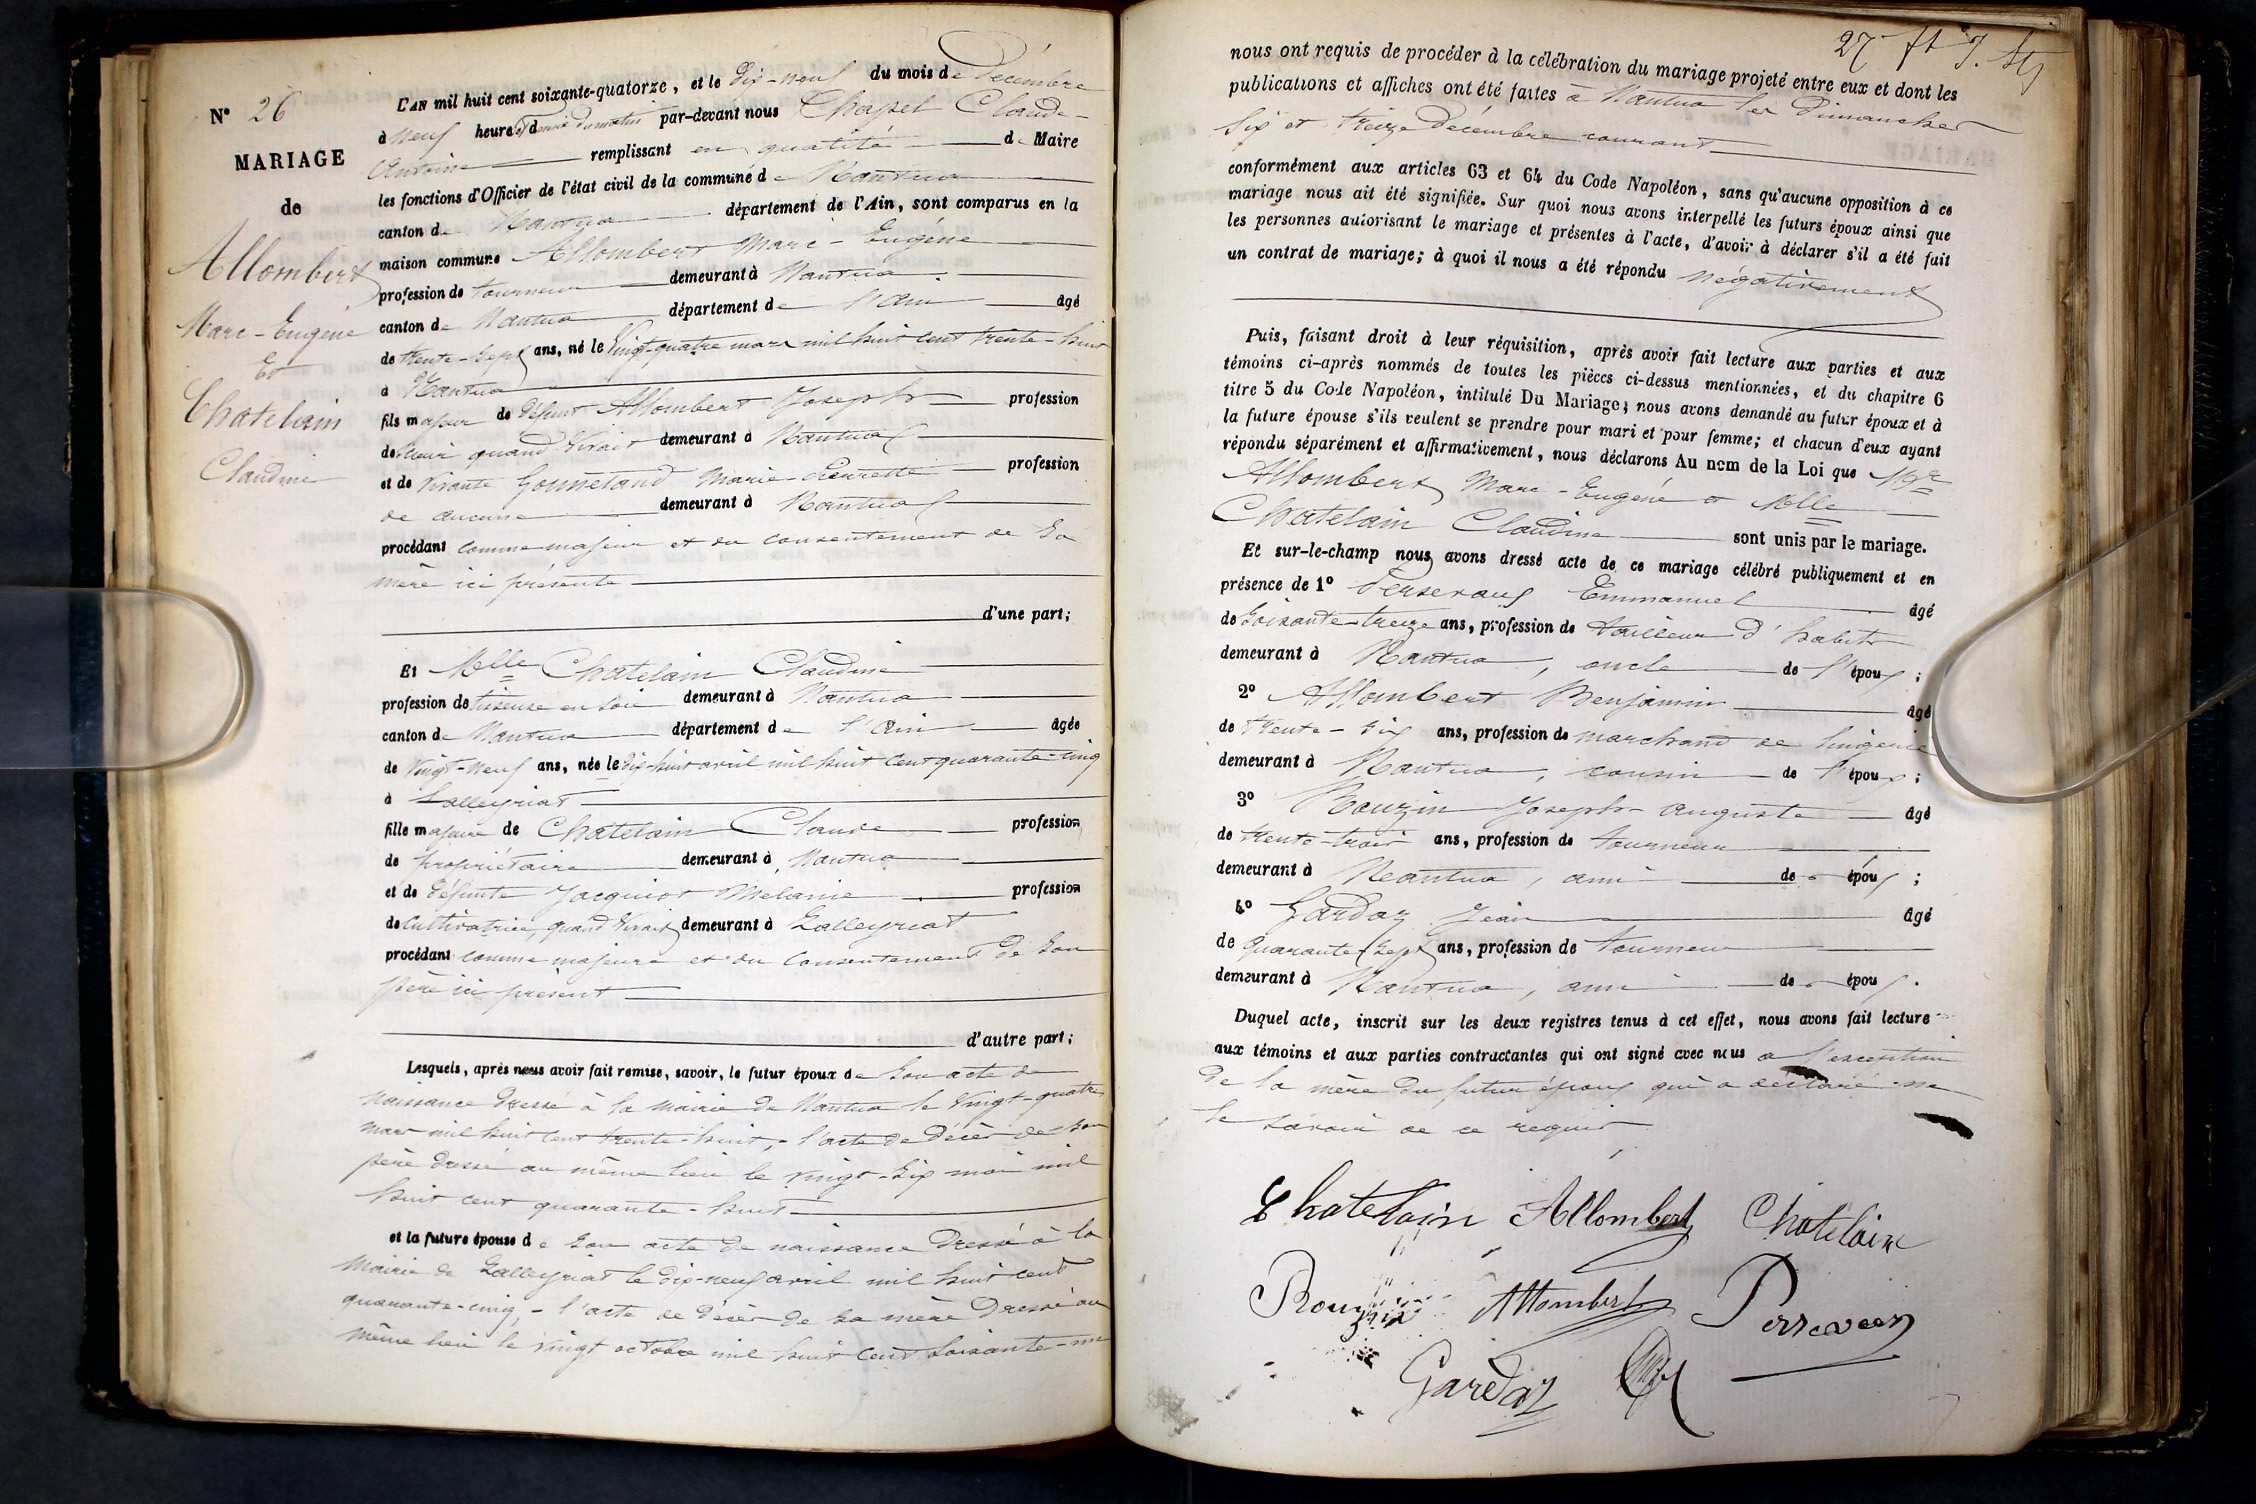 N° 26
MARIAGE
de
Allombert
Marc-Eugène
Et
Chatelain
Claudine
L'AN mil huit cent soixante-quatorze, et le dix-neuf du mois de Décembre
à neuf heures et demie du matin par-devant nous Chapel Claude-
Antoine remplissant en qualité de Maire
les fonctions d'Officier de l'état civil de la commune de Nantua
canton de Nantua département de l'Ain, sont comparus en la
maison commune Allombert Marc-Eugène
profession de tourneur demeurant à Nantua
canton de Nantua département de l'Ain âgé
de trente-sept ans, né le Vingt-quatre mars mil huit cent trente-huit
à Nantua
fils majeur de défunt Allombert Joseph profession
de quand vivait demeurant à Nantua
et de vivante Marie profession
de aucune demeurant à Nantua
procédant comme majeur et du consentement de sa
mère ici présente
d'une part;
Et Melle Chatelain Claudine
profession de tisseuse en soie demeurant à Nantua
canton de Nantua département de l'Ain âgée
de Vingt-neuf ans, née le dix-huit avril mil huit cent quarante-cinq
à Lalleyriat
fille majeure de Chatelain Claude profession
de propriétaire demeurant à Nantua
et de défunte Jacquiot Mélanie profession
de Cultivatrice, quand vivait demeurant à Lalleyriat
procédant comme majeure et du consentement de son
père ici présent
d'autre part;
Lesquels, après nous avoir fait remise, savoir, le futur époux de son acte de
naissance dressé à la mairie de Nantua le Vingt-quatre
mars mil huit cent trente-huit, - l'acte de décès de son
père dressé au même lieu le vingt-six mai mil
huit cent quarante-huit
et la future épouse de son acte de naissance dressé à la
Mairie de Lalleyriat le dix-neuf avril mil huit cent
quarante-cinq, - l'acte de décès de sa mère dressé au
même lieu le vingt octobre mil huit cent soixante-un
27 ft
nous ont requis de procéder à la célébration du mariage projeté entre eux et dont les
publications et affiches ont été faites à Nantua les Dimanches
Six et treize Décembre courant
conformément aux articles 63 et 64 du Code Napoléon, sans qu'aucune opposition à ce
mariage nous ait été signifiée. Sur quoi nous avons interpellé les futurs époux ainsi que
les personnes autorisant le mariage et présentes à l'acte, d'avoir à déclarer s'il a été fait
un contrat de mariage; à quoi il nous a été répondu négativement
Puis, faisant droit à leur réquisition, après avoir fait lecture aux parties et aux
témoins ci-après nommés de toutes les pièces ci-dessus mentionnées, et du chapitre 6
titre 5 du Code Napoléon, intitulé Du Mariage; nous avons demandé au futur époux et à
la future épouse s'ils veulent se prendre pour mari et pour femme; et chacun d'eux ayant
répondu séparément et affirmativement, nous déclarons Au nom de la Loi que Mr
Allombert Marc-Eugène et Melle
Chatelain Claudine sont unis par le mariage.
Et sur-le-champ nous avons dressé acte de ce mariage célébré publiquement et en
présence de 1° Emmanuel âgé
de Soixante-treize ans, profession de tailleur d'habits
demeurant à Nantua, oncle de l'époux;
2° Allombert Benjamin âgé
de trente-six ans, profession de marchand de lingerie
demeurant à Nantua, cousin de l'époux;
3° Rouzin Joseph Auguste âgé
de trente-trois ans, profession de tourneur
demeurant à Nantua, ami de époux;
4° Gardaz Jean âgé
de quarante-sept ans, profession de tourneur
demeurant à Nantua, ami de époux.
Duquel acte, inscrit sur les deux registres tenus à cet effet, nous avons fait lecture
aux témoins et aux parties contractantes qui ont signé avec nous à l'exception
de la mère du futur époux qui a déclaré ne
le savoir de ce requise
Chatelain Allombert Chatelain
Rouzin Allombert
Gardaz